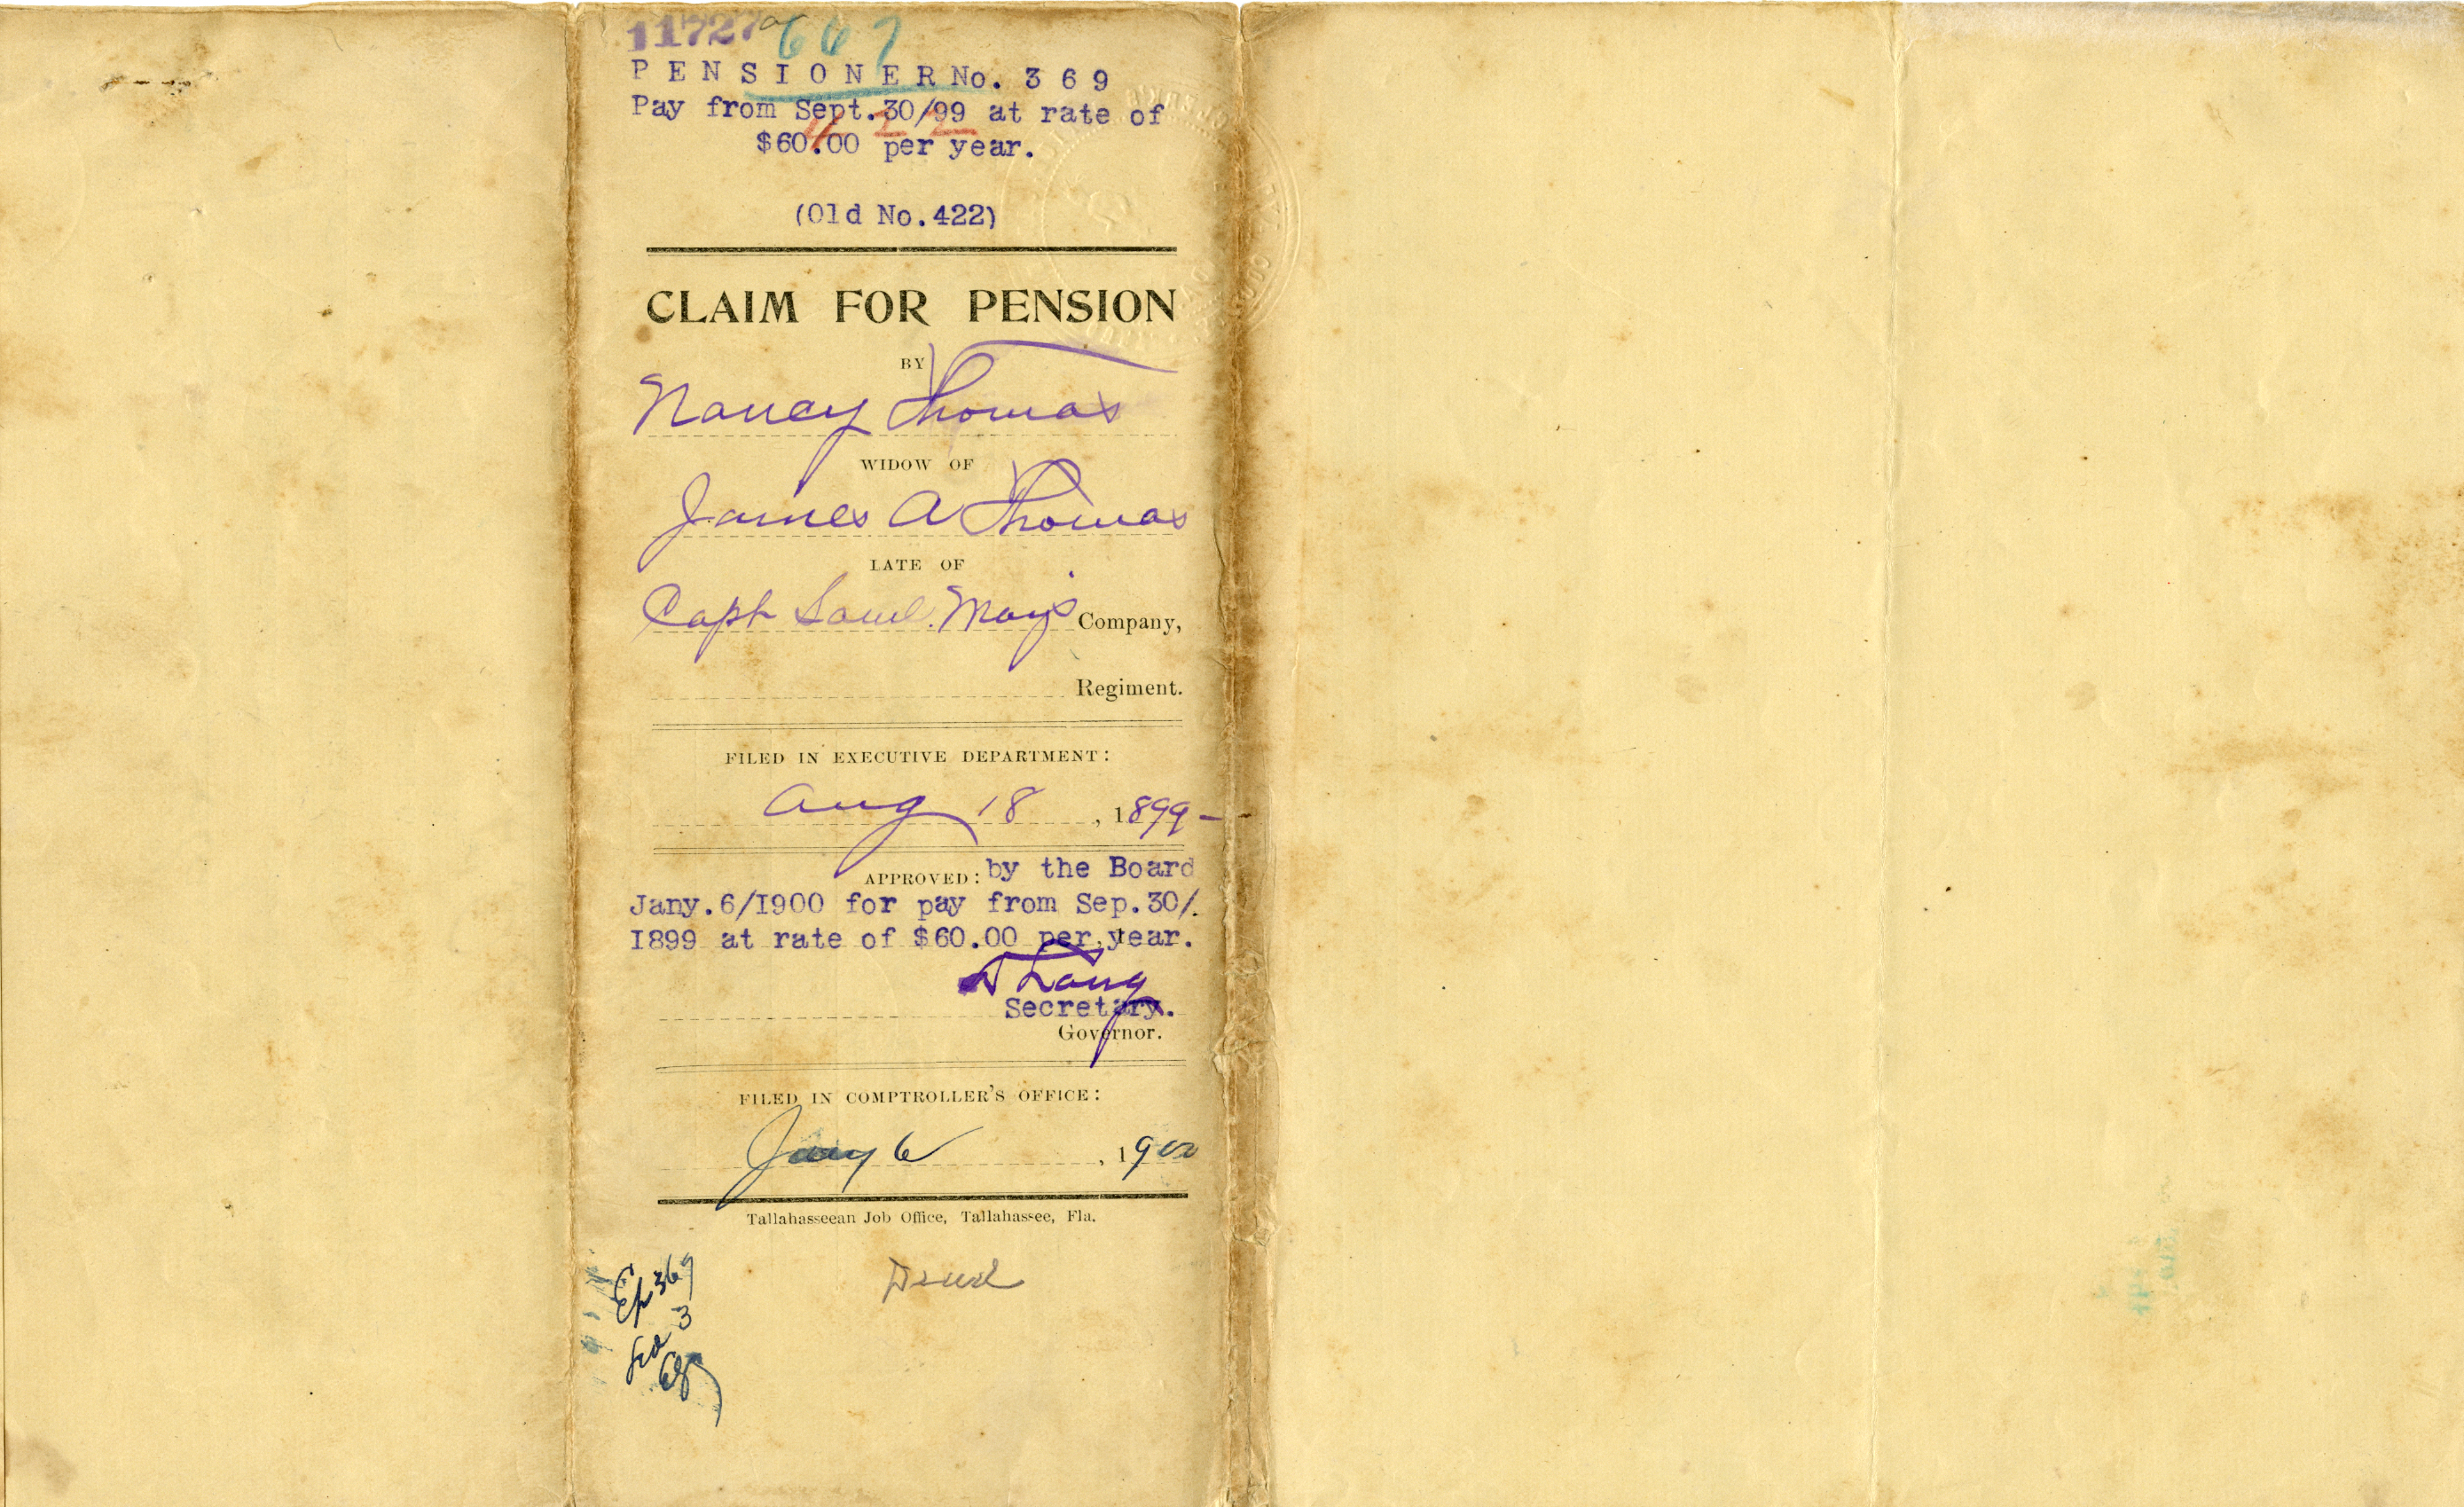 11727
667
PENSIONER No. 369
Pay from Sept. 30/99 at rate of
422
$60.00 per year.
(Old No. 422)
CLAIM FOR PENSION
BY
Nancy Thomas
WIDOW OF
James A Thomas
LATE OF
Capt Saml. Mays Company,
Regiment.
FILED IN EXECUTIVE DEPARTMENT:
Aug 18, 1899-
APPROVED: by the Board
Jany. 6/I900 for pay from Sep. 30/.
I899 at rate of $60.00 per year.
D Lang
Secretary.
Governor.
FILED IN COMPTROLLER'S OFFICE:
Jany 6, 1900
Tallahasseean Job Office, Tallahassee, Fla.
Ep 369
3